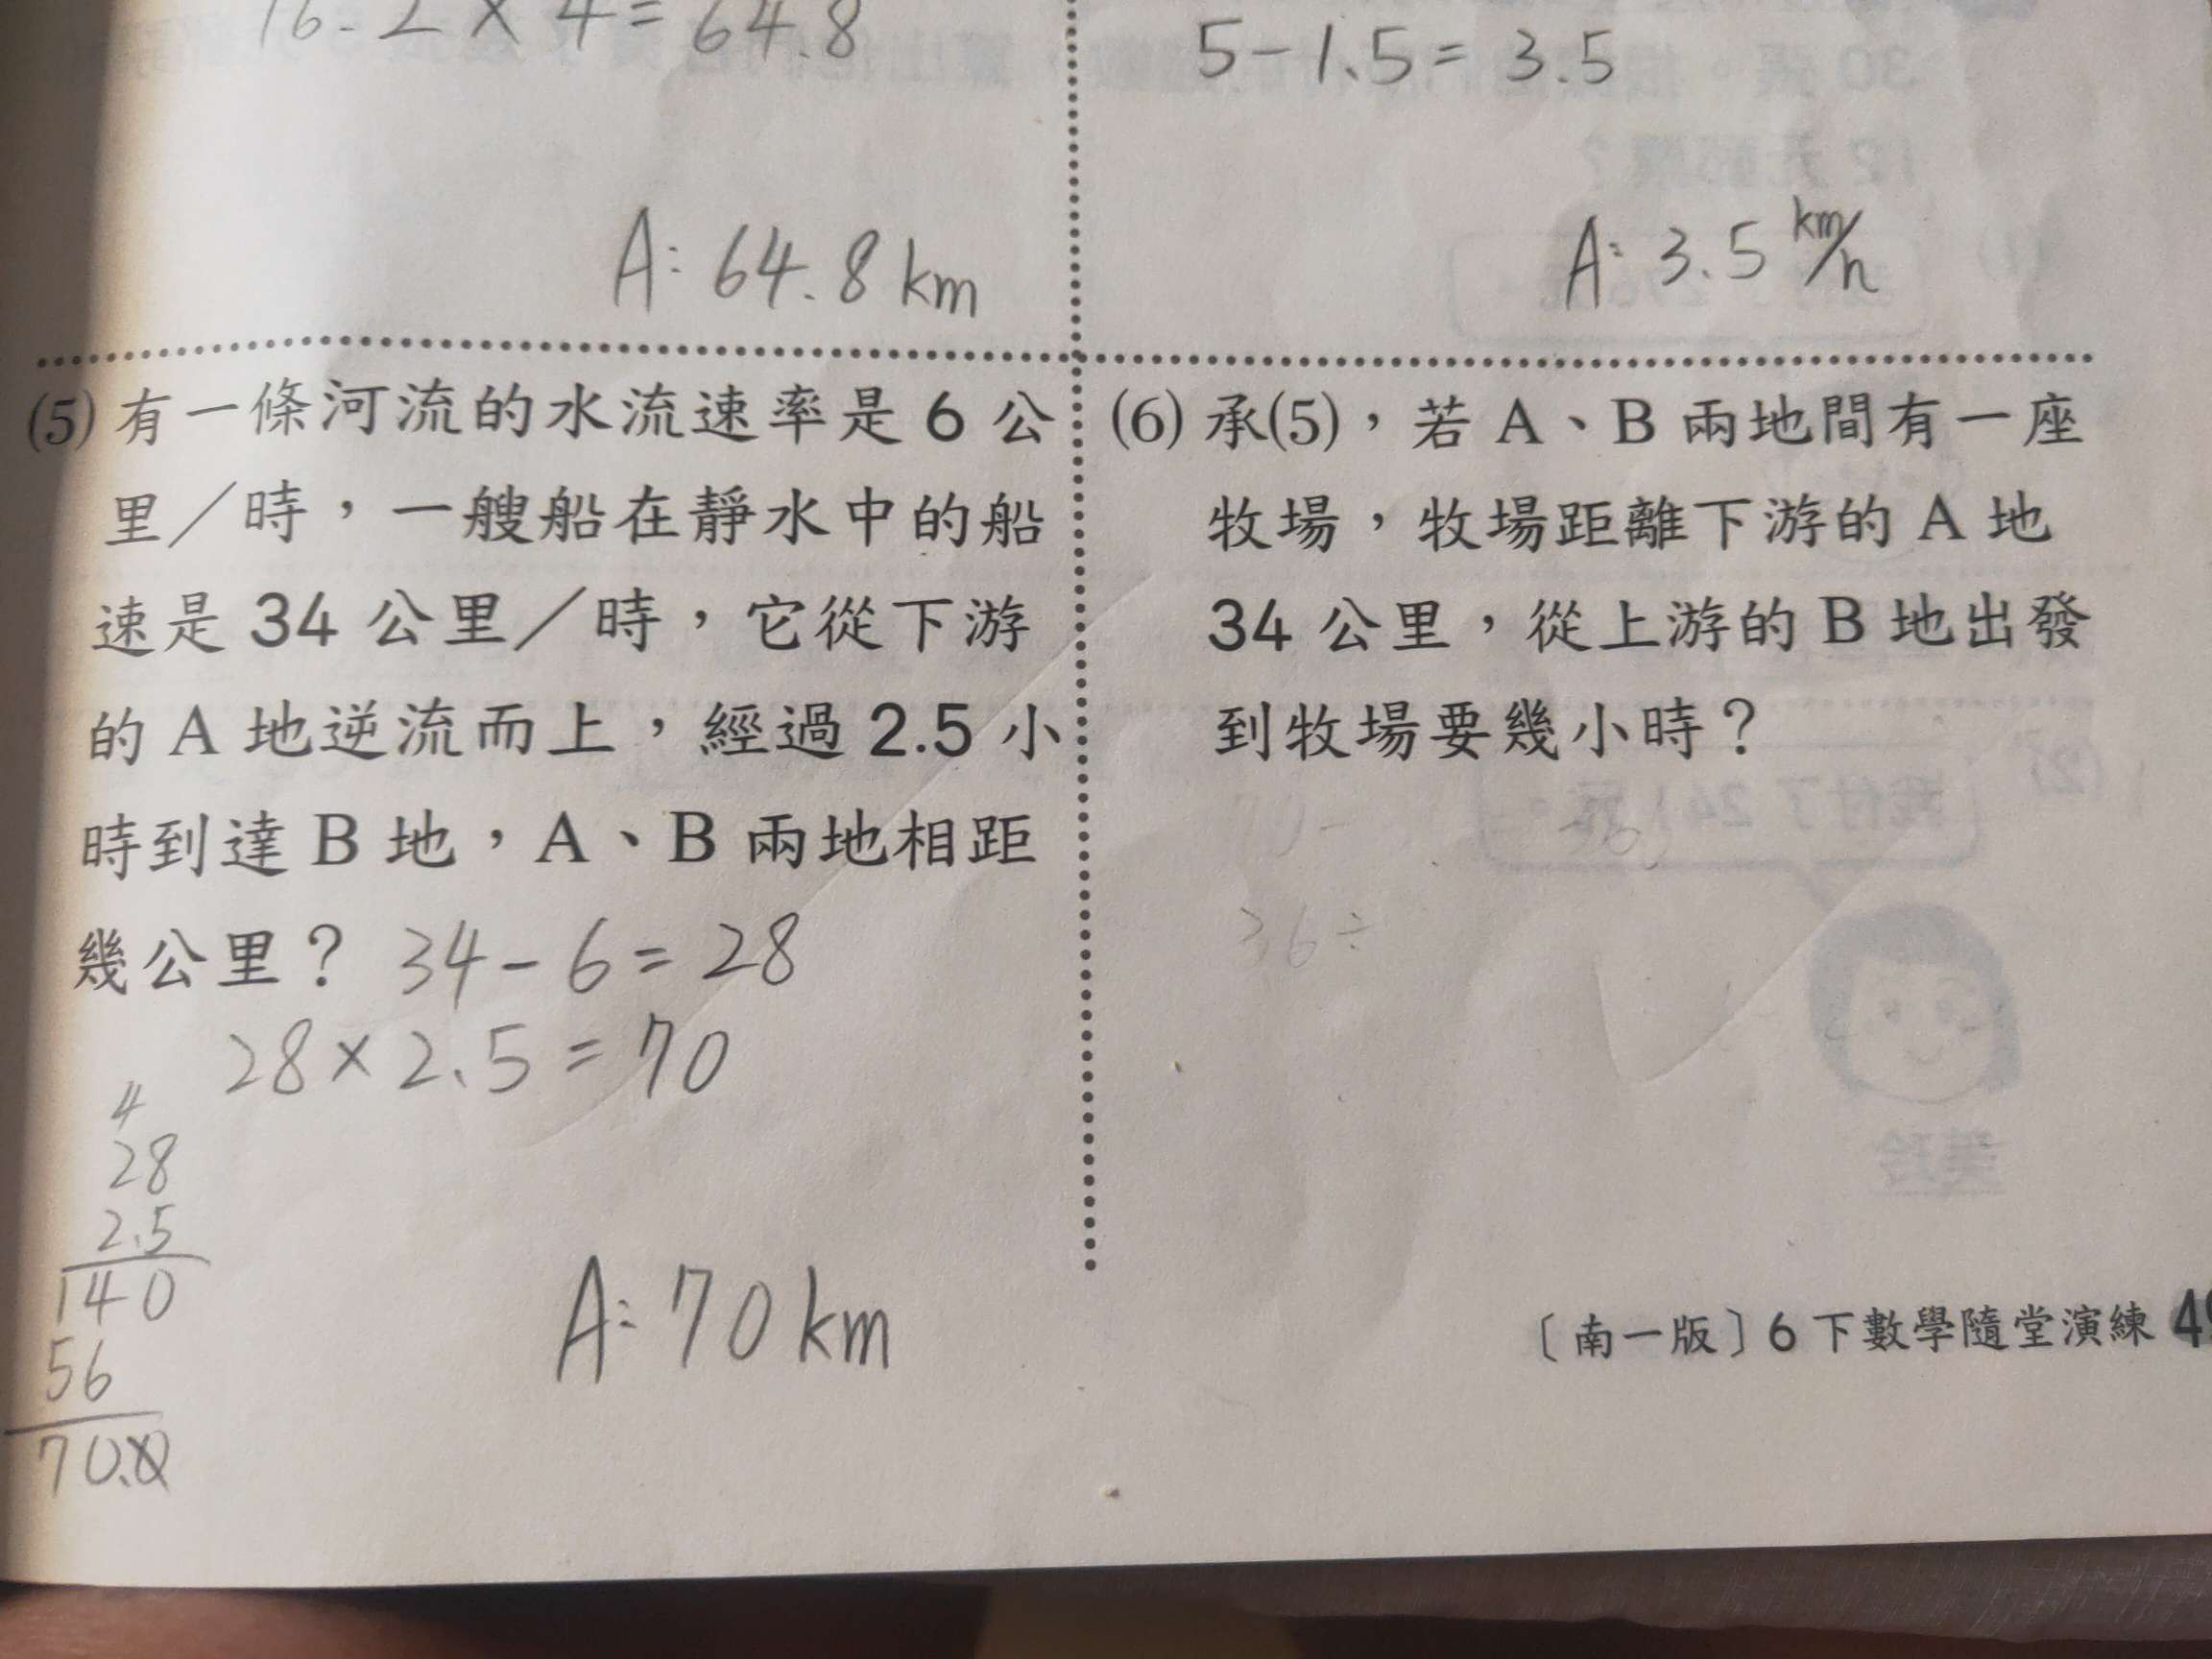 16.2×4=64.8
A:64.8km
5-1.5=3.5
A:3.5 km/h
(5)有一條河流的水流速率是6公
里／時，一艘船在靜水中的船
速是34公里／時，它從下游
的A地逆流而上，經過2.5小
時到達B地，A、B兩地相距
幾公里？34-6=28
28×2.5=70
4
28
2.5
140
56
70.0
A:70km
(6)承(5)，若A、B兩地間有一座
牧場，牧場距離下游的A地
34公里，從上游的B地出發
到牧場要幾小時？
36÷
〔南一版〕6下數學隨堂演練